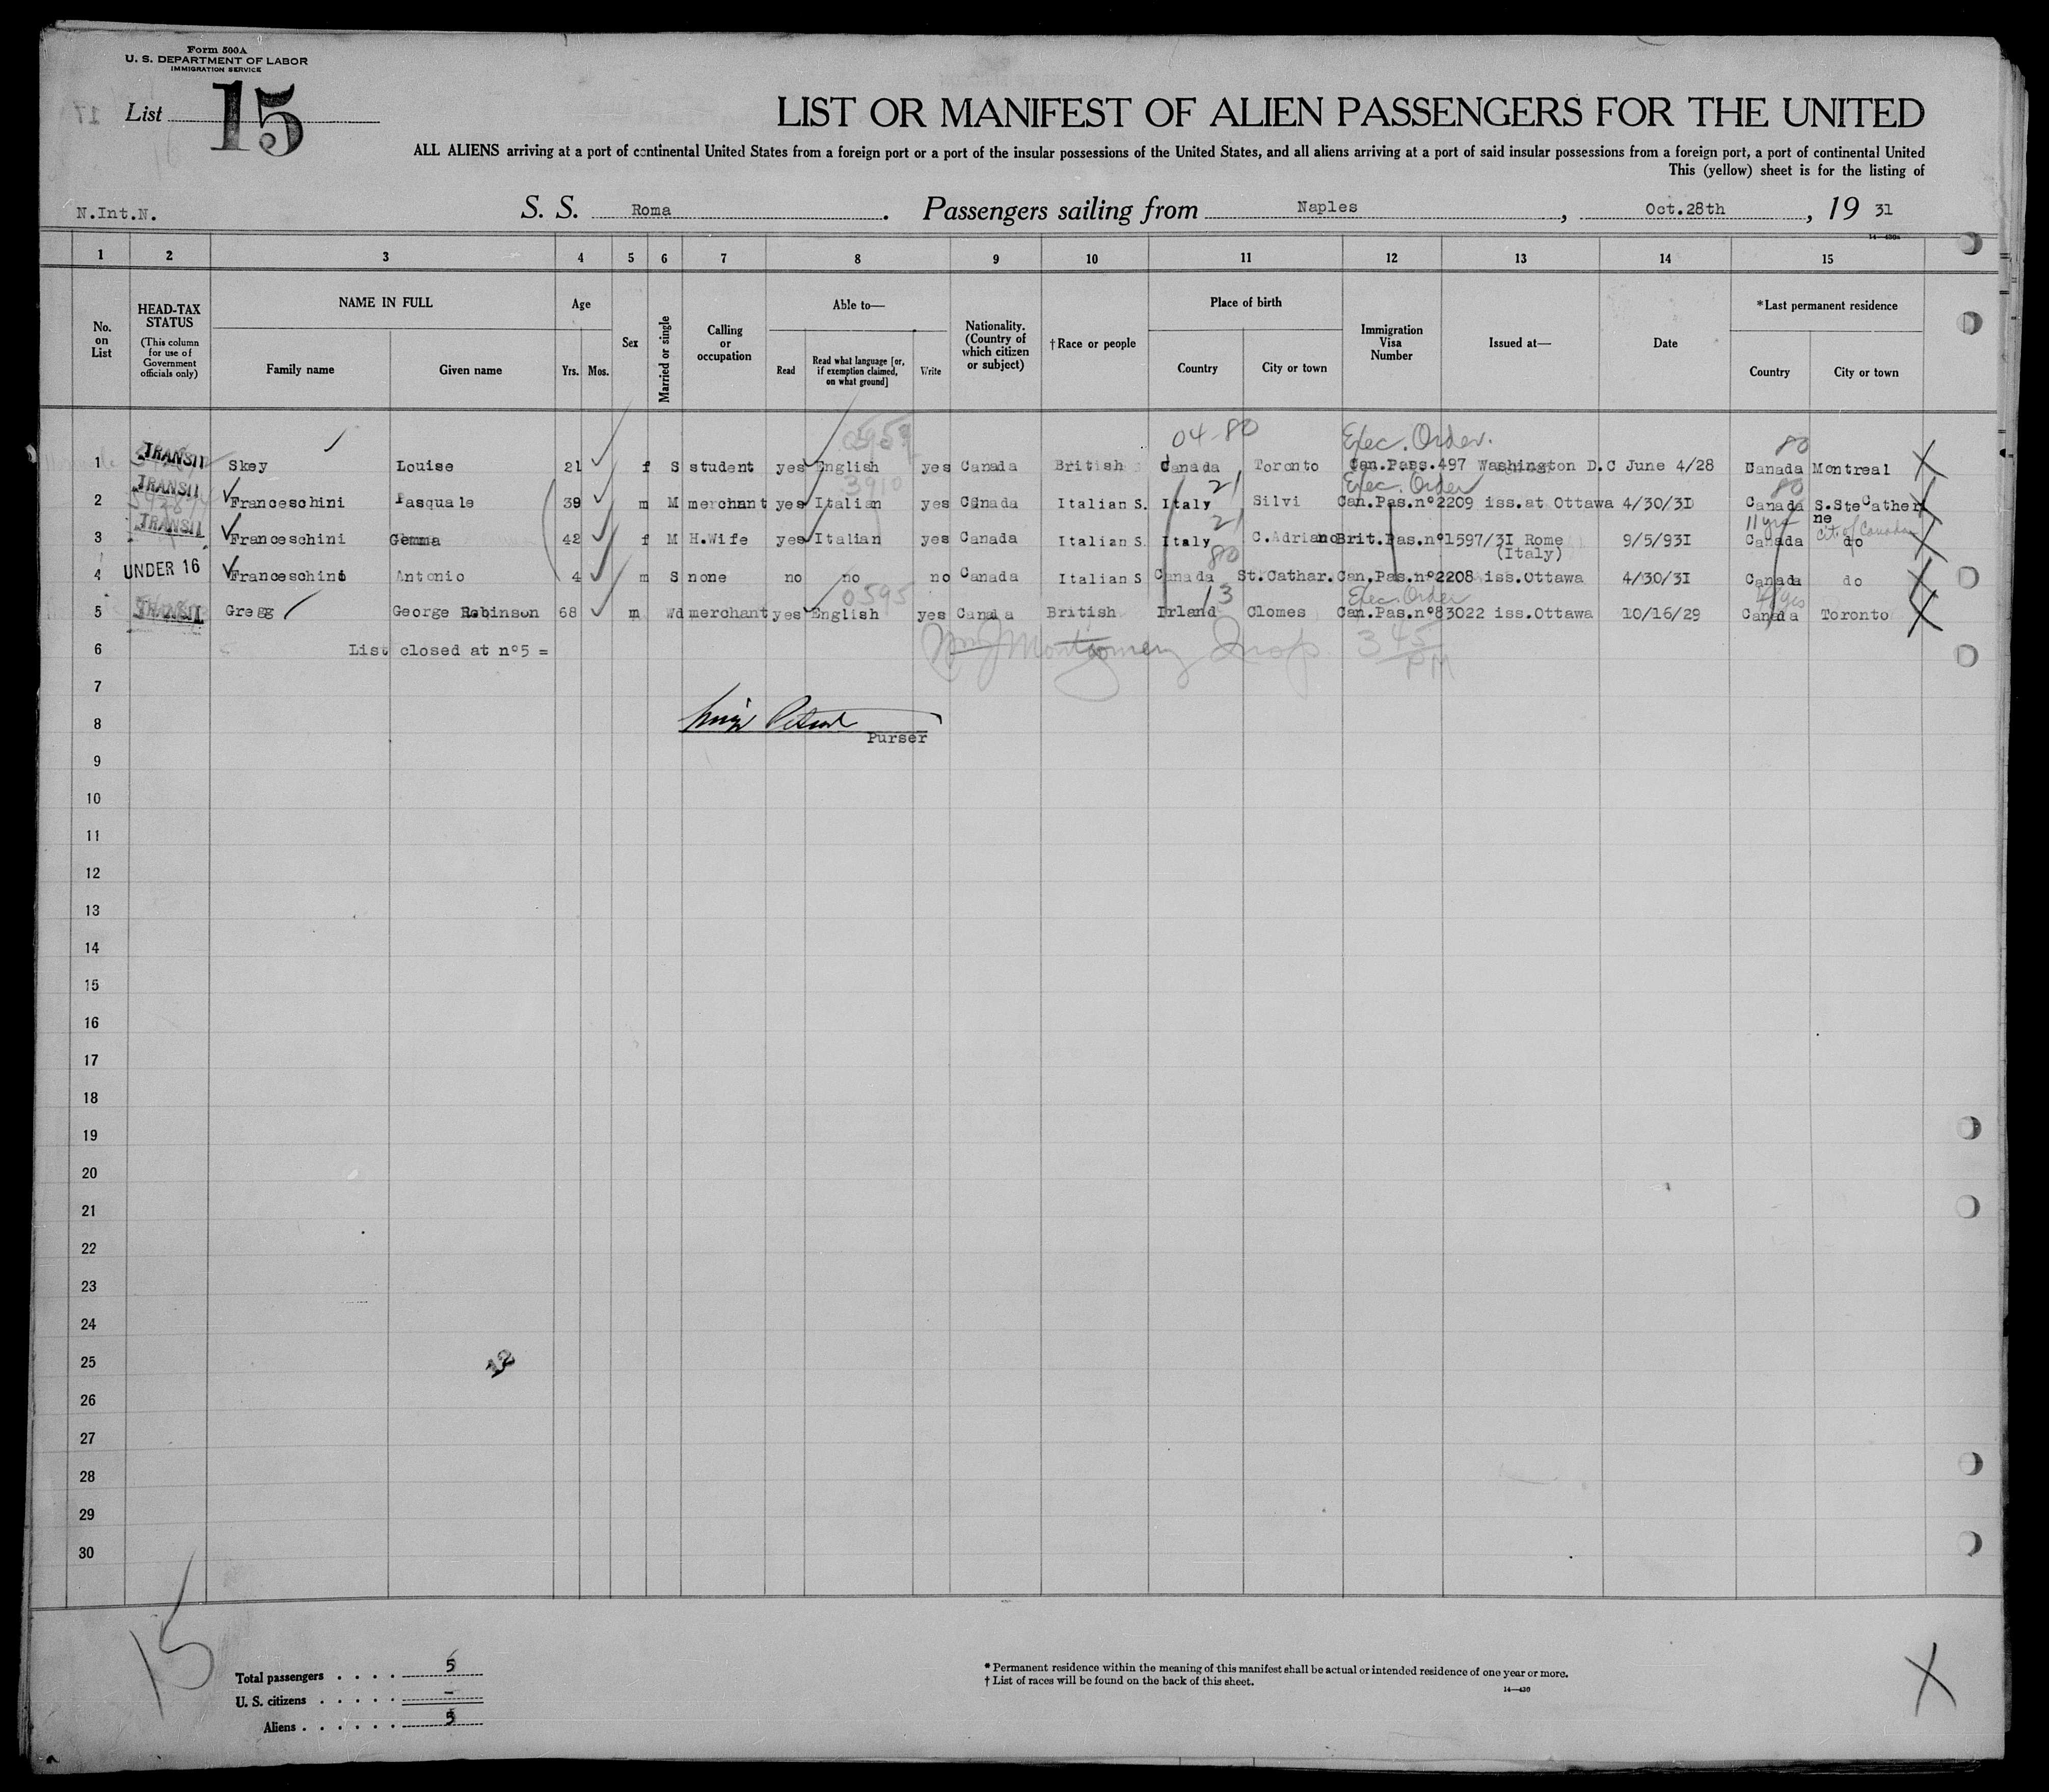 Form 500A
U. S. DEPARTMENT OF LABOR
IMMIGRATION SERVICE
List 15
LIST OR MANIFEST OF ALIEN PASSENGERS FOR THE UNITED
ALL ALIENS arriving at a port of continental United States from a foreign port or a port of the insular possessions of the United States, and all aliens arriving at a port of said insular possessions from a foreign port, a port of continental United
This (yellow) sheet is for the listing of
N.Int.N. S. S. Roma. Passengers sailing from Naples, Oct.28th, 19 31
1 2 3 4 5 6 7 8 9 10 11 12 13 14 15
No. on List
HEAD-TAX STATUS
(This column for use of Government officials only)
NAME IN FULL
Family name Given name
Age
Yrs. Mos.
Sex
Married or single
Calling or occupation
Able to—
Read Read what language [or, if exemption claimed, on what ground] Write
Nationality. (Country of which citizen or subject)
†Race or people
Place of birth
Country City or town
Immigration Visa Number
Issued at—
Date
*Last permanent residence
Country City or town
04-80 Exec. Order. 80
1 TRANSIT Skey Louise 21 f S student yes English yes Canada British Canada Toronto Can.Pass.497 Washington D.C June 4/28 Canada Montreal
3910 21 Exec. Order 80
2 TRANSIT Franceschini Pasquale 39 m M merchant yes Italian yes Canada Italian S. Italy Silvi Can.Pas.nº2209 iss.at Ottawa 4/30/31 Canada S.SteCatheri
21 11 yrs ne cit. of Canada
3 TRANSIT Franceschini Gemma 42 f M H.Wife yes Italian yes Canada Italian S. Italy C.Adriano Brit.Pas.nº1597/31 Rome 9/5/931 Canada do
80 (Italy)
4 UNDER 16 Franceschini Antonio 4 m S none no no no Canada Italian S Canada St.Cathar. Can.Pas.nº2208 iss.Ottawa 4/30/31 Canada do
0595 13 Exec. Order
5 TRANSIT Gregg George Robinson 68 m Wd merchant yes English yes Canada British Irland Clomes Can.Pas.nº83022 iss.Ottawa 10/16/29 Canada Toronto
6 List closed at nº5 = Montgomery Insp. 3 45 PM
7
8
Purser
9
10
11
12
13
14
15
16
17
18
19
20
21
22
23
24
25
26
27
28
29
30
15
Total passengers . . . . 5
U. S. citizens . . . . . –
Aliens . . . . . . 5
* Permanent residence within the meaning of this manifest shall be actual or intended residence of one year or more.
† List of races will be found on the back of this sheet.
14—430